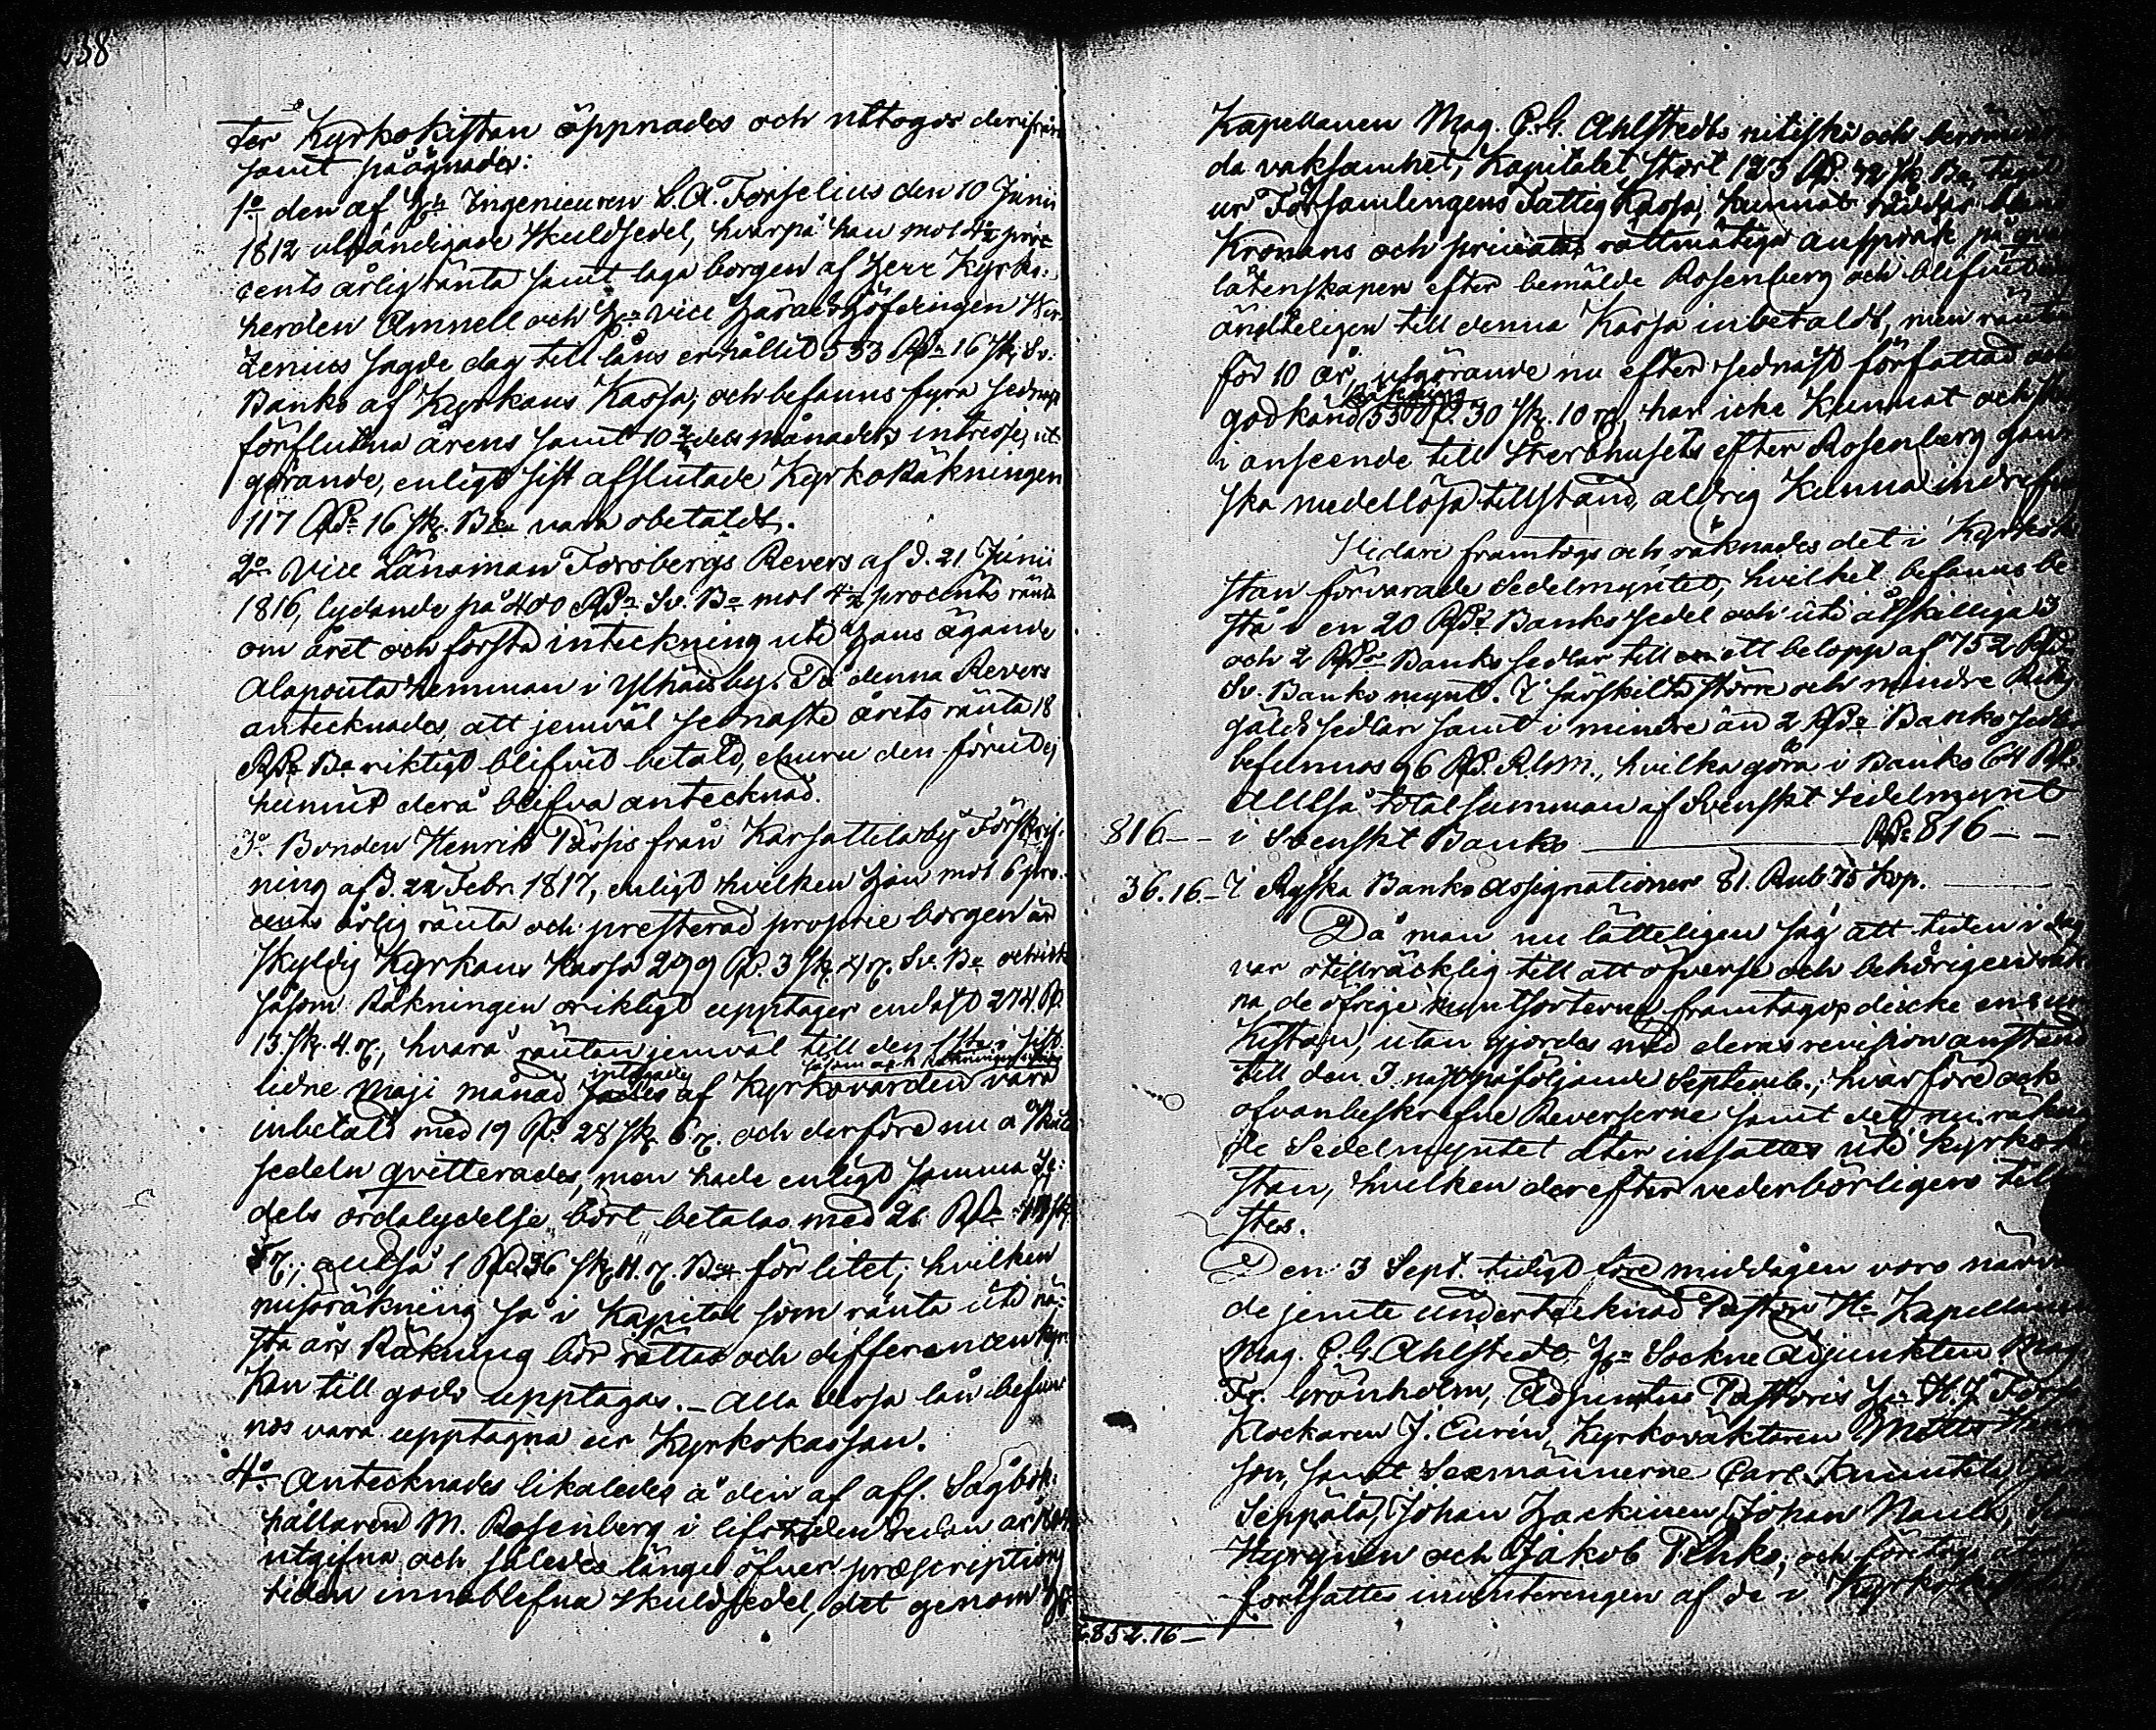 238
ter Kyrkokistan öppnades och uttogos derifrån
samt påögnades:
1o den af Hr Ingenieuren L. A. Forselius den 10 Junii
1812 utfändigade Skuldsedel, hvarpå han mot 4½ pro
cents årlig ränta samt laga borgen af Herr Kyrko-
herden Amnell och Hr vice Häradshöfdingen
zenius sagde dag till låns erhållit 533 Rdr 16 sk. Sv.
Banko af Kyrkans Kassa; och befanns fyra sednast
förflutna årens samt 10 2/3 dels månaders intresse, ut-
görande, enligt sist afslutade KyrkoRäkningen
117 Rdr 16 sk. Bko vara obetaldt.
2o Vice Länsman Forsbergs Revers af d. 21 Junii
1816, lydande på 400 Rdr Sv. Bo mot 4½ procents ränta
om året och första inteckning uti Hans ägande
Alapouta hemman i Ylhäis by. På denna Revers
antecknades, att jemväl sednaste årets ränta 18
Rdr Bo riktigt blifvit betald, ehuru den förut ej
hunnit derå blifva antecknad.
3o Bonden Henrik Pärsis från Karsattila by Förskrif-
ning af d. 22 Febr. 1817, enligt hvilken han mot 6 pro-
cents årlig ränta och presterad proprie borgen är
skyldig Kyrkans Kassa 299 R. 3 sk. 4 r. Sv. Bo och icke
såsom Räkningen oriktigt upptager endast 274 R.
13 sk. 4 r., hvarå räntan jemväl till den 1ste i sist-
lidne Maji månad intygades af Kyrkovärden vara
inbetald med 19 R. 28 sk. 6 r. och derföre nu å Skuld
sedeln qvitterades, men hade enligt samma Se-
dels ordalydelse bört betalas med 21 Rdr
5 r.; altså 1 Rdr 36 sk. 11 r. Bko för litet; hvilken
missräkning så i Kapital som ränta uti nä-
sta års Räkning bör rättas och differencen Kyr-
kan till godo upptagas. - Alla dessa lån befun-
nos vara upptagna ur Kyrkokassan.
4o Antecknades likaledes å den af afl. Sågbok-
hållaren M. Rosenberg i lifstiden redan år
utgifna och således länge öfver præscriptions
tiden innoblefna Skuldsedel, det genom Hr
Kapellanen Mag. P. G. Ahlstedts nitiska och berömvär
da vaksamhet, Kapitalet, stort 123 Rdr 42 sk. Bo, taget
ur Församlingens Fattig Kassa, kunnat räddas
Kronans och privates rättmätiga anspråk på qvar
låtenskapen efter bemälde Rosenberg och blifvit
ändteligen till denna Kassa inbetaldt, men räntan
för 10 år, utgörande nu efter sednast författad och
godkänd räkning 55 R. 30 sk. 10 r., har icke kunnat och
i anseende till Sterbhusets efter Rosenberg gan
ska medellösa tillstånd, aldrig kunna indrifvas
Vidare framtogs och räknades det i Kyrkoki
stan förvarade Sedelmyntet, hvilket befanns be
stå i en 20 Rdr Banko sedel och uti åtskilliga 3
och 2 Rdr Banko sedlar till ett belopp af 752 Rdr
Sv. Banko mynt. I särskilta större och mindre Riks
gälds sedlar samt i mindre än 2 Rdr Banko sedlar
befunnos 96 Rd. Rksm., hvilka göra i Banko 64 Rd.
Alltså totalsumman af Svenskt Sedelmynt
816 — — i Svenskt Banko — Rdr 816 — —
36.16. — I Ryska Banko Assignationer 81. Rub. 75 Kop. —
Då man nu lätteligen såg att tiden i dag
var otillräcklig till att öfverse och behörigen räk
na de öfrige myntsorterne framtogos de icke en gång ur
Kistan, utan gjordes med deras revision anstånd
till den 3. nästpåföljande Septemb.; hvarföre ock
ofvanbeskrefne Reverserne samt det nu räkna
de Sedelmyntet åter insattes uti Kyrkoki
stan, hvilken derefter vederbörligen tillslö
tes.
Den 3 Sept. tidigt före middagen voro närvaran
de jemte undertecknad Pastor Hr Kapellanen
Mag. P. G. Ahlstedt, Hr Sockne Adjunkten Mag.
Fr. Grönholm, Adjunctus Pastoris Hr H. J. Fors
Klockaren J. Eurén, Kyrkoväktaren Matts
son, samt Sexmännerne Carl Knuutila,
Seppälä, Johan Hackinen, Johan Naula,
Hyrynen och Jakob Pehko; och företogs åter
fortsattes inventeringen af de i Kyrkokistan
852.16 —